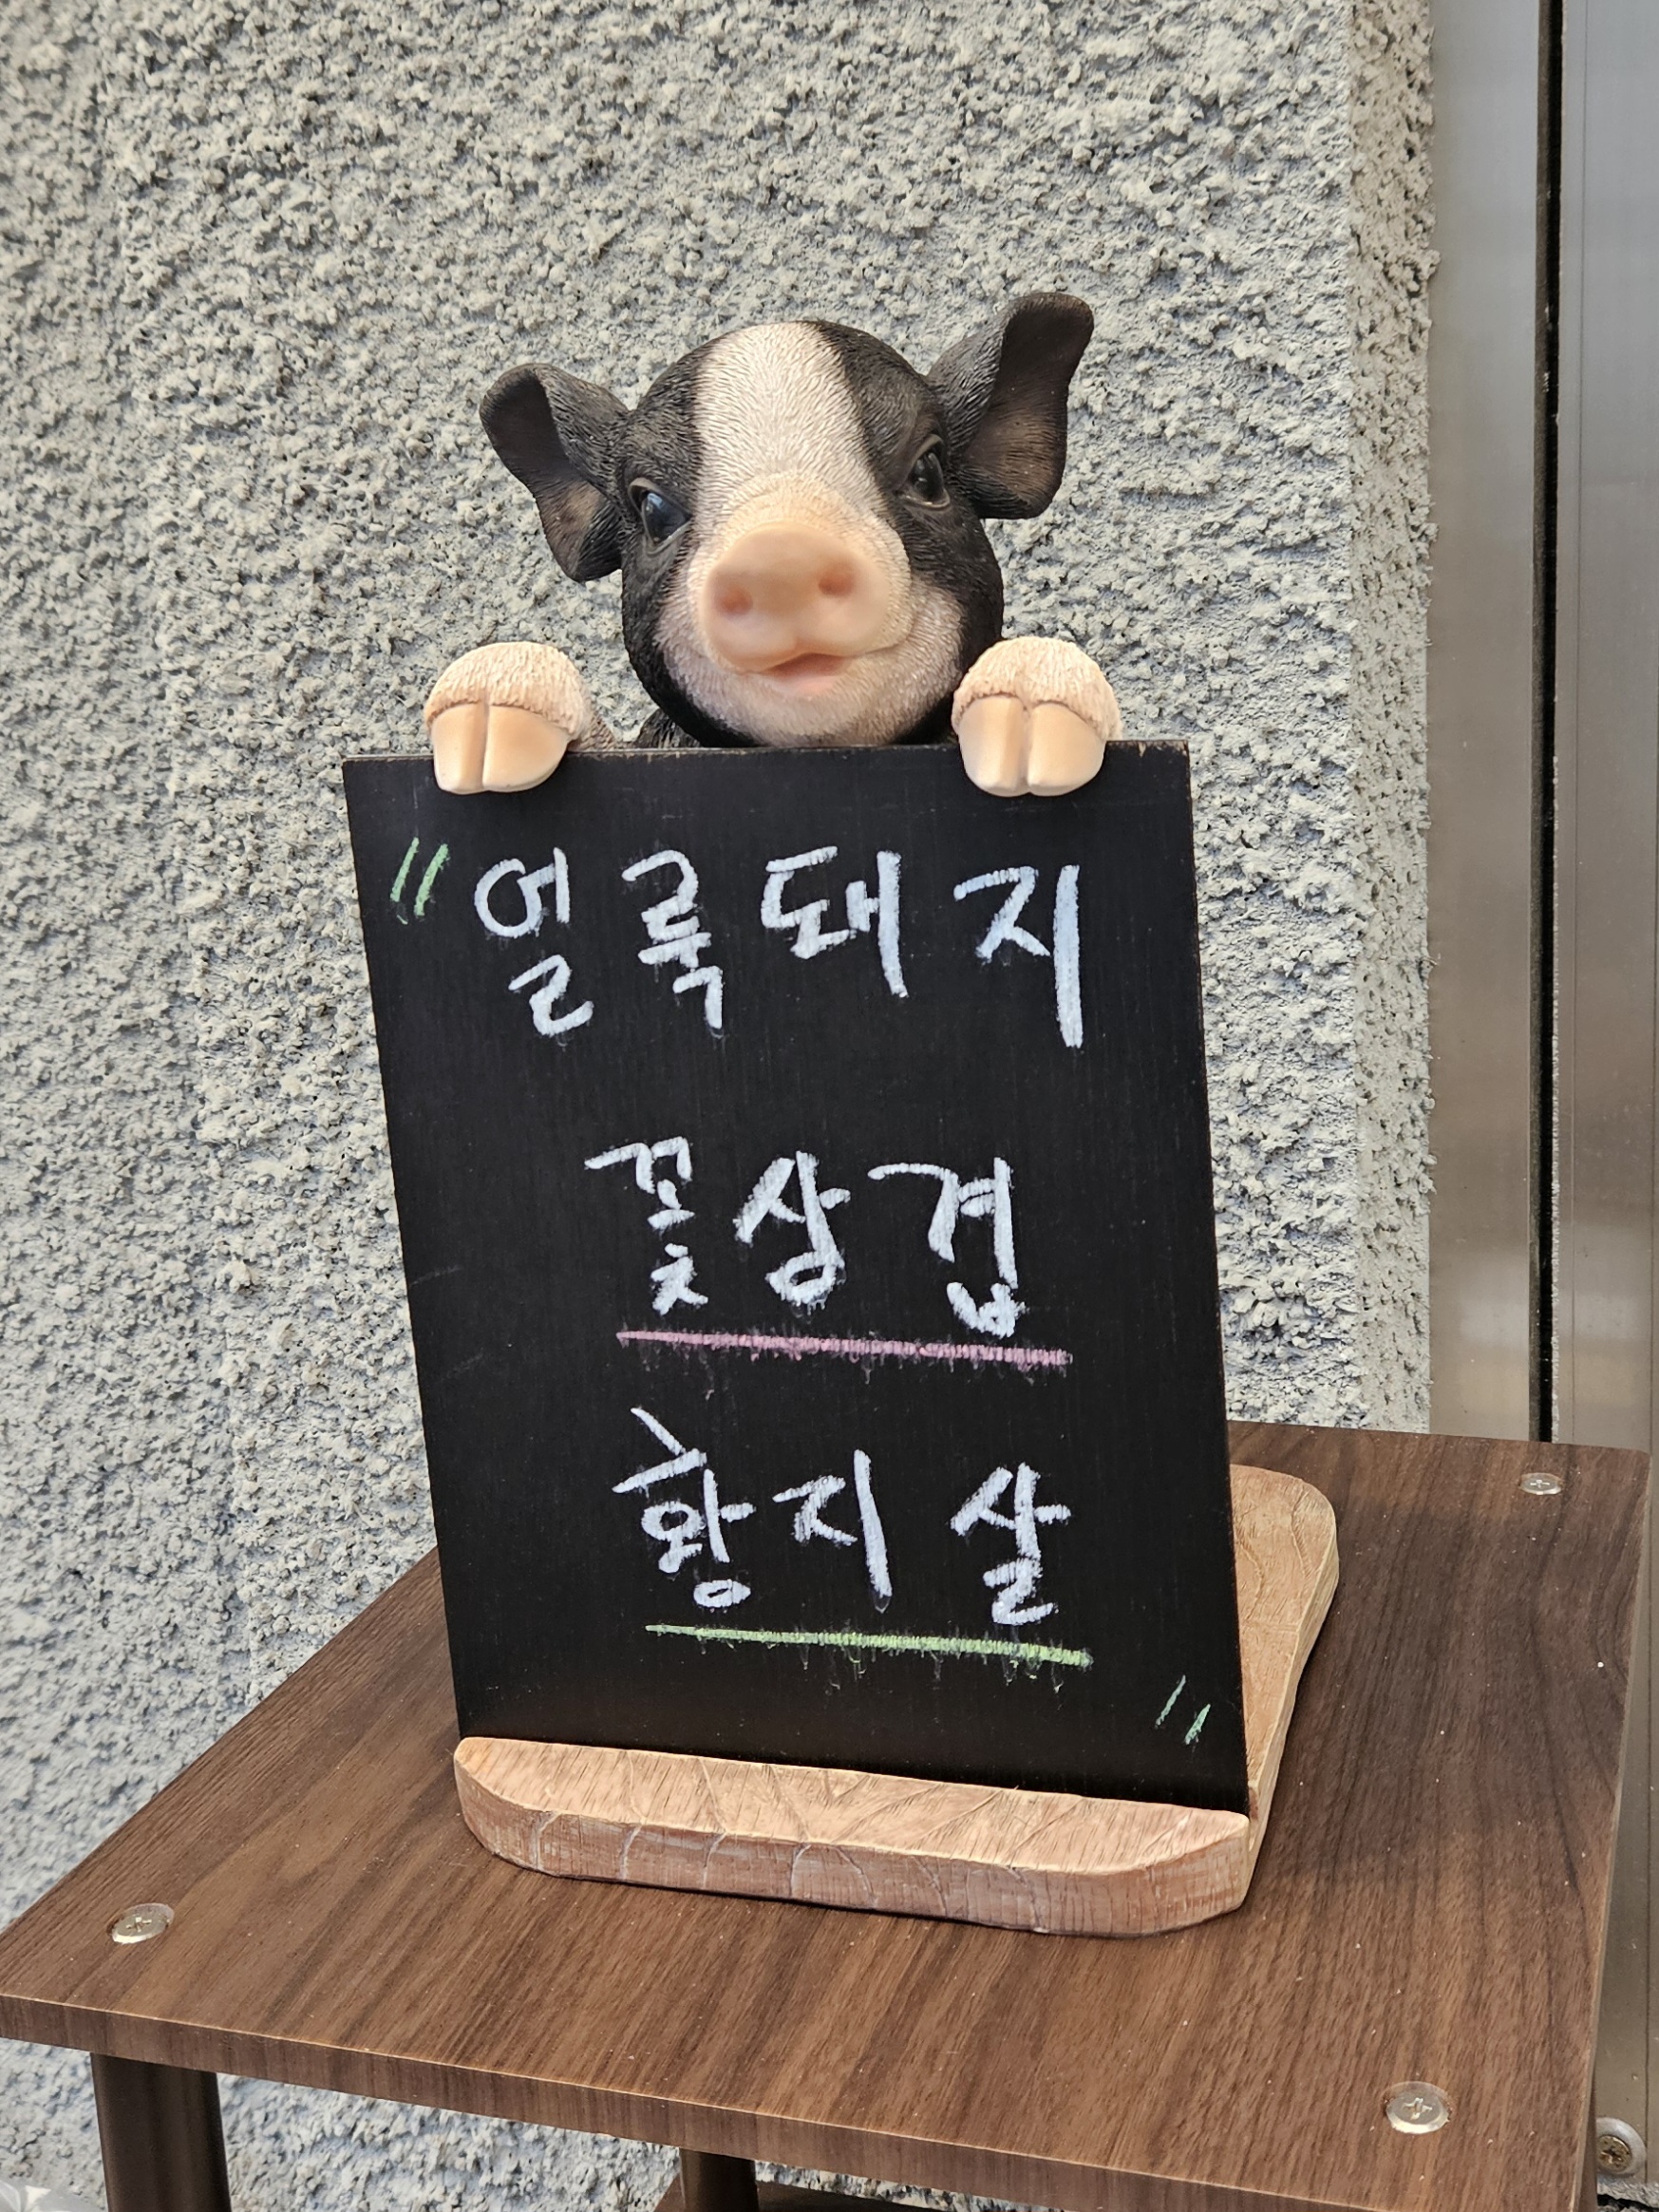 "얼룩돼지
꽃삼겹
황지살"